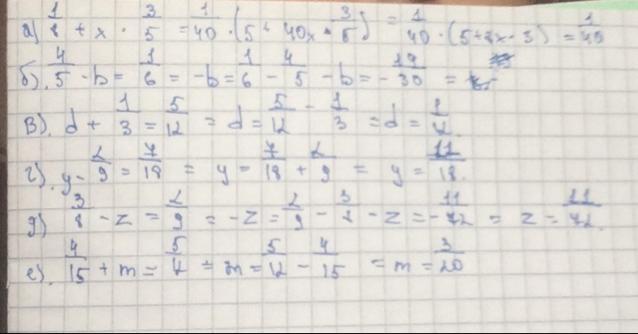 а) 1/8 + x · 3/5 = 1/40 · (5 + 40x · 3/5) = 1/40 · (5+8x · 3) = 1/40
б). 4/5 - b = 1/6 = -b = 1/6 - 4/5 - b = - 19/30 =
в). d + 1/3 = 5/12 = d = 5/12 - 1/3 = d = 1/12.
г). y - 2/9 = 7/18 = y = 7/18 + 2/9 = y = 11/18.
д) 3/8 - z = 2/9 = -z = 2/9 - 3/8 - z = - 11/72 = z = 11/72.
е). 4/15 + m = 5/12 = m = 5/12 - 4/15 = m = 3/20